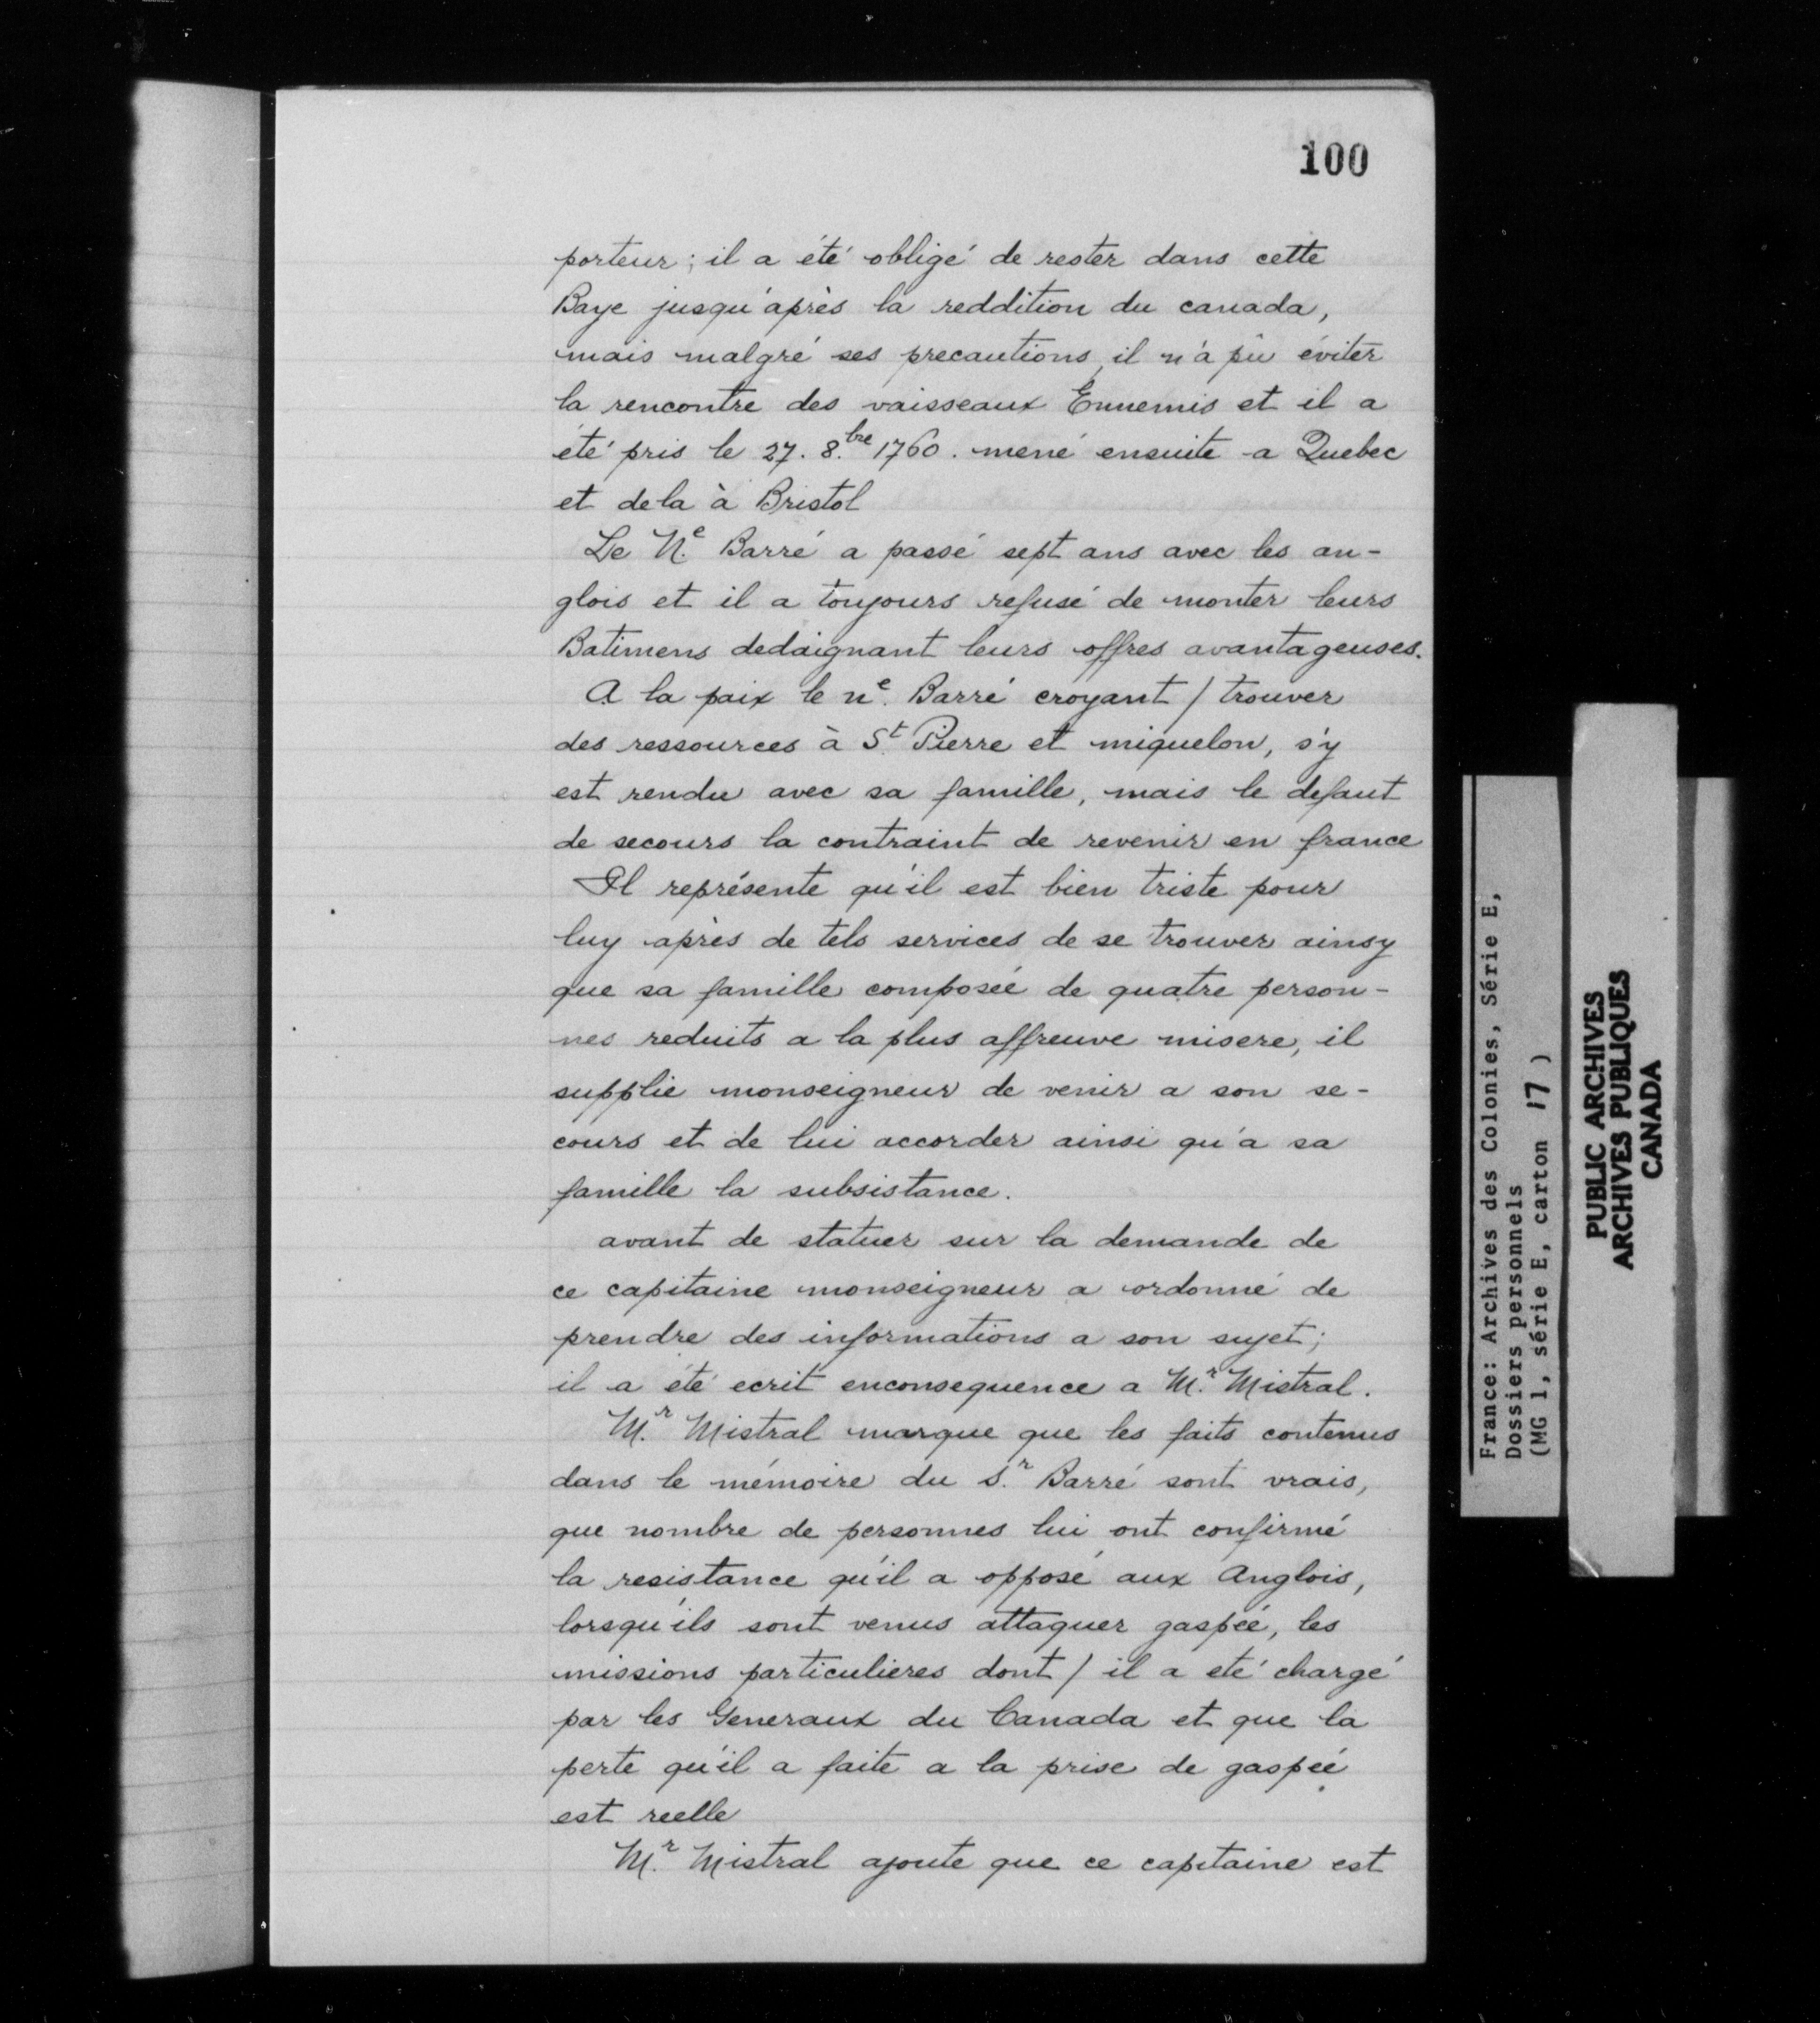 100
porteur; il a été obligé de rester dans cette
Baye jusqu'après la reddition du canada,
mais malgré ses precautions, il n'a pû éviter
la rencontre des vaisseaux Ennemis et il a
été pris le 27. 8.bre 1760. mené ensuite a Quebec
et de la à Bristol
Le N.e Barré a passé sept ans avec les an-
glois et il a toujours refusé de monter leurs
Batimens dedaignant leurs offres avantageuses.
A la paix le n.e Barré croyant / trouver
des ressources à S.t Pierre et miquelon, s'y
est rendu avec sa famille, mais le defaut
de secours la contraint de revenir en france
Il représente qu'il est bien triste pour
luy après de tels services de se trouver ainsy
que sa famille composée de quatre person-
nes reduits a la plus affreuve misere, il
supplie monseigneur de venir a son se-
cours et de lui accorder ainsi qu'a sa
famille la subsistance.
avant de statuer sur la demande de
ce capitaine monseigneur a ordonné de
prendre des informations a son sujet;
il a été ecrit enconsequence a M.r Mistral.
M.r Mistral marque que les faits contenus
dans le mémoire du S.r Barré sont vrais,
que nombre de personnes lui ont confirmé
la resistance qu'il a opposé aux Anglois,
lorsqu'ils sont venus attaquer gaspée, les
missions particulieres dont / il a eté chargé
par les Generaux du Canada et que la
perte qu'il a faite a la prise de gaspée
est reelle
M.r Mistral ajoute que ce capitaine est
France: Archives des Colonies, Série E,
Dossiers personnels
(MG 1, série E, carton 17)
PUBLIC ARCHIVES
ARCHIVES PUBLIQUES
CANADA